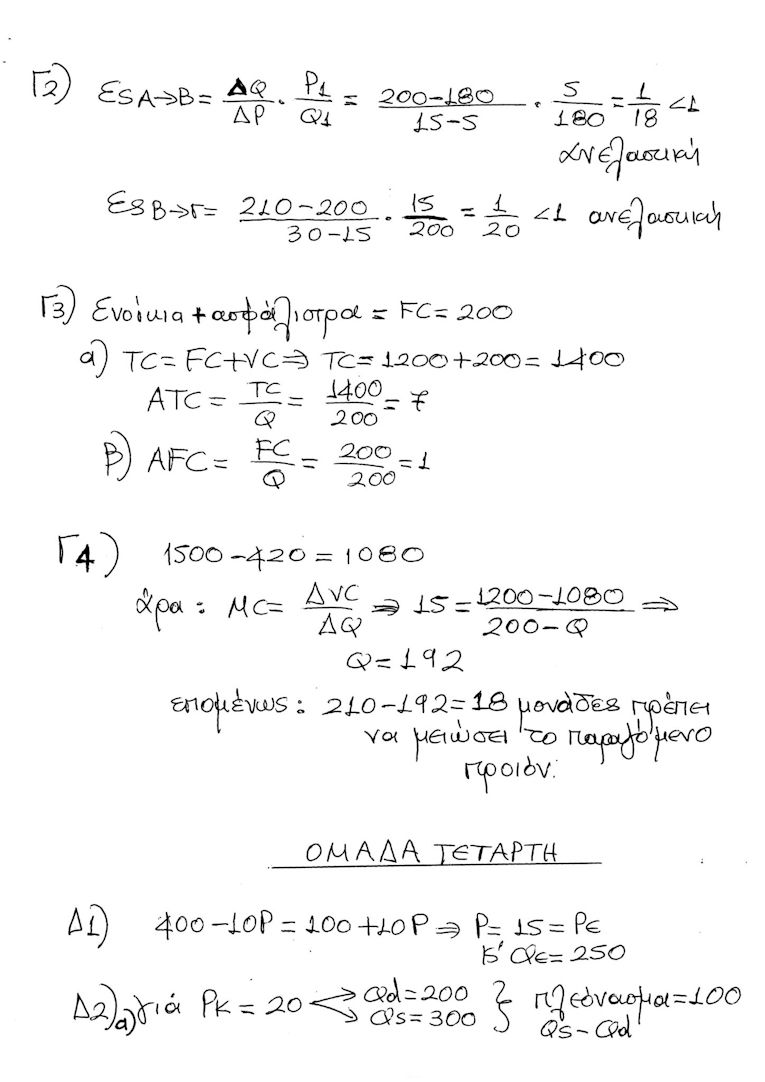 Γ2) ΕS A→B = ΔQ/ΔP · P1/Q1 = 200-180/15-5 · 5/180 = 1/18 <1
ανελαστική
ΕS B→Γ = 210-200/30-15 · 15/200 = 1/20 <1 ανελαστική
Γ3) Ενοίκια + ασφάλιστρα = FC = 200
α) TC = FC+VC ⇒ TC = 1200+200 = 1400
ATC = TC/Q = 1400/200 = 7
β) AFC = FC/Q = 200/200 = 1
Γ4) 1500-420 = 1080
άρα : MC = ΔVC/ΔQ ⇒ 15 = 1200-1080/200-Q ⇒
Q = 192
επομένως : 210-192 = 18 μονάδες πρέπει
να μειώσει το παραγόμενο
προιόν.
ΟΜΑΔΑ ΤΕΤΑΡΤΗ
Δ1) 400-10P = 100+10P ⇒ P = 15 = Pε
κ' Qε = 250
Δ2) α) γιά PK = 20 → Qd = 200 } πλεόνασμα = 100
→ Qs = 300 Qs-Qd